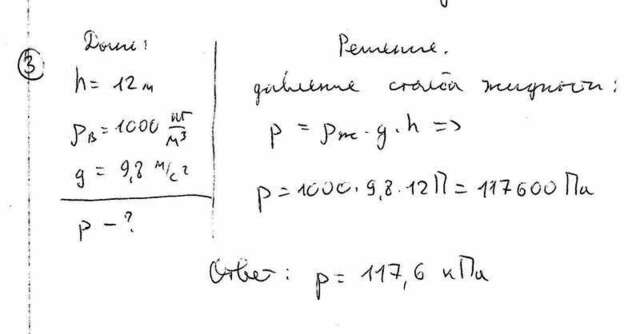 3
Дано:
h = 12 м
ρв = 1000 кг/м³
g = 9,8 м/с²
p – ?
Решение.
давление столба жидкости:
p = ρж · g · h =>
p = 1000 · 9,8 · 12 П = 117600 Па
Ответ: p = 117,6 кПа